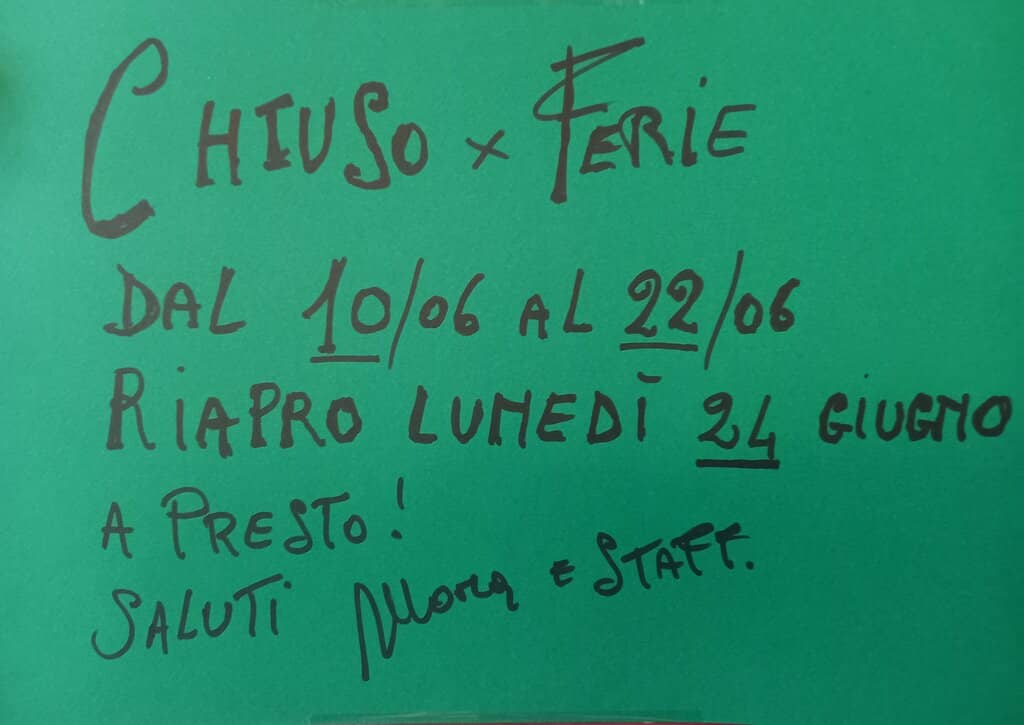 CHIUSO x FERIE
DAL 10/06 AL 22/06
RIAPRO LUNEDÌ 24 GIUGNO
A PRESTO!
SALUTI E STAFF.